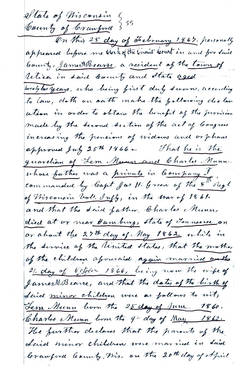 State of Wisconsin } SS
County of Crawford }
On this 28 day of February 1867, personally
appeared before me Clerk of the Circuit Court in and for said
County, James H Bearse a resident of the town of
Utica in said County and State aged
years, who being first duly sworn, according
to law, doth on oath make the following decla-
ration in order to obtain the benefit of the provision
made by the second section of the act of Congress
increasing the pensions of widows and orphans
approved July 25th 1866. That he is the
guardian of Fern Munn and Charles Munn
whose father was a private in Company I
commanded by Capt Jas H. Green of the 8th Regt
of Wisconsin Vol. Infty, in the war of 1861
and that the said father, Charles Munn,
died at or near state of on
or about the 27th day of May 1862 while in
the service of the United States; that the mother
of the children aforesaid again married on the
21 day of October 1866, being now the wife of
James H Bearse, and that the date of the birth of
said minor children were as follows to wit;
Fern Munn born the 28 day of June 1860.
Charles Munn born the 9th day of May 1862.
He further declares that the parents of the
said minor children were married in said
Crawford County, Wis. on the 20th day of April